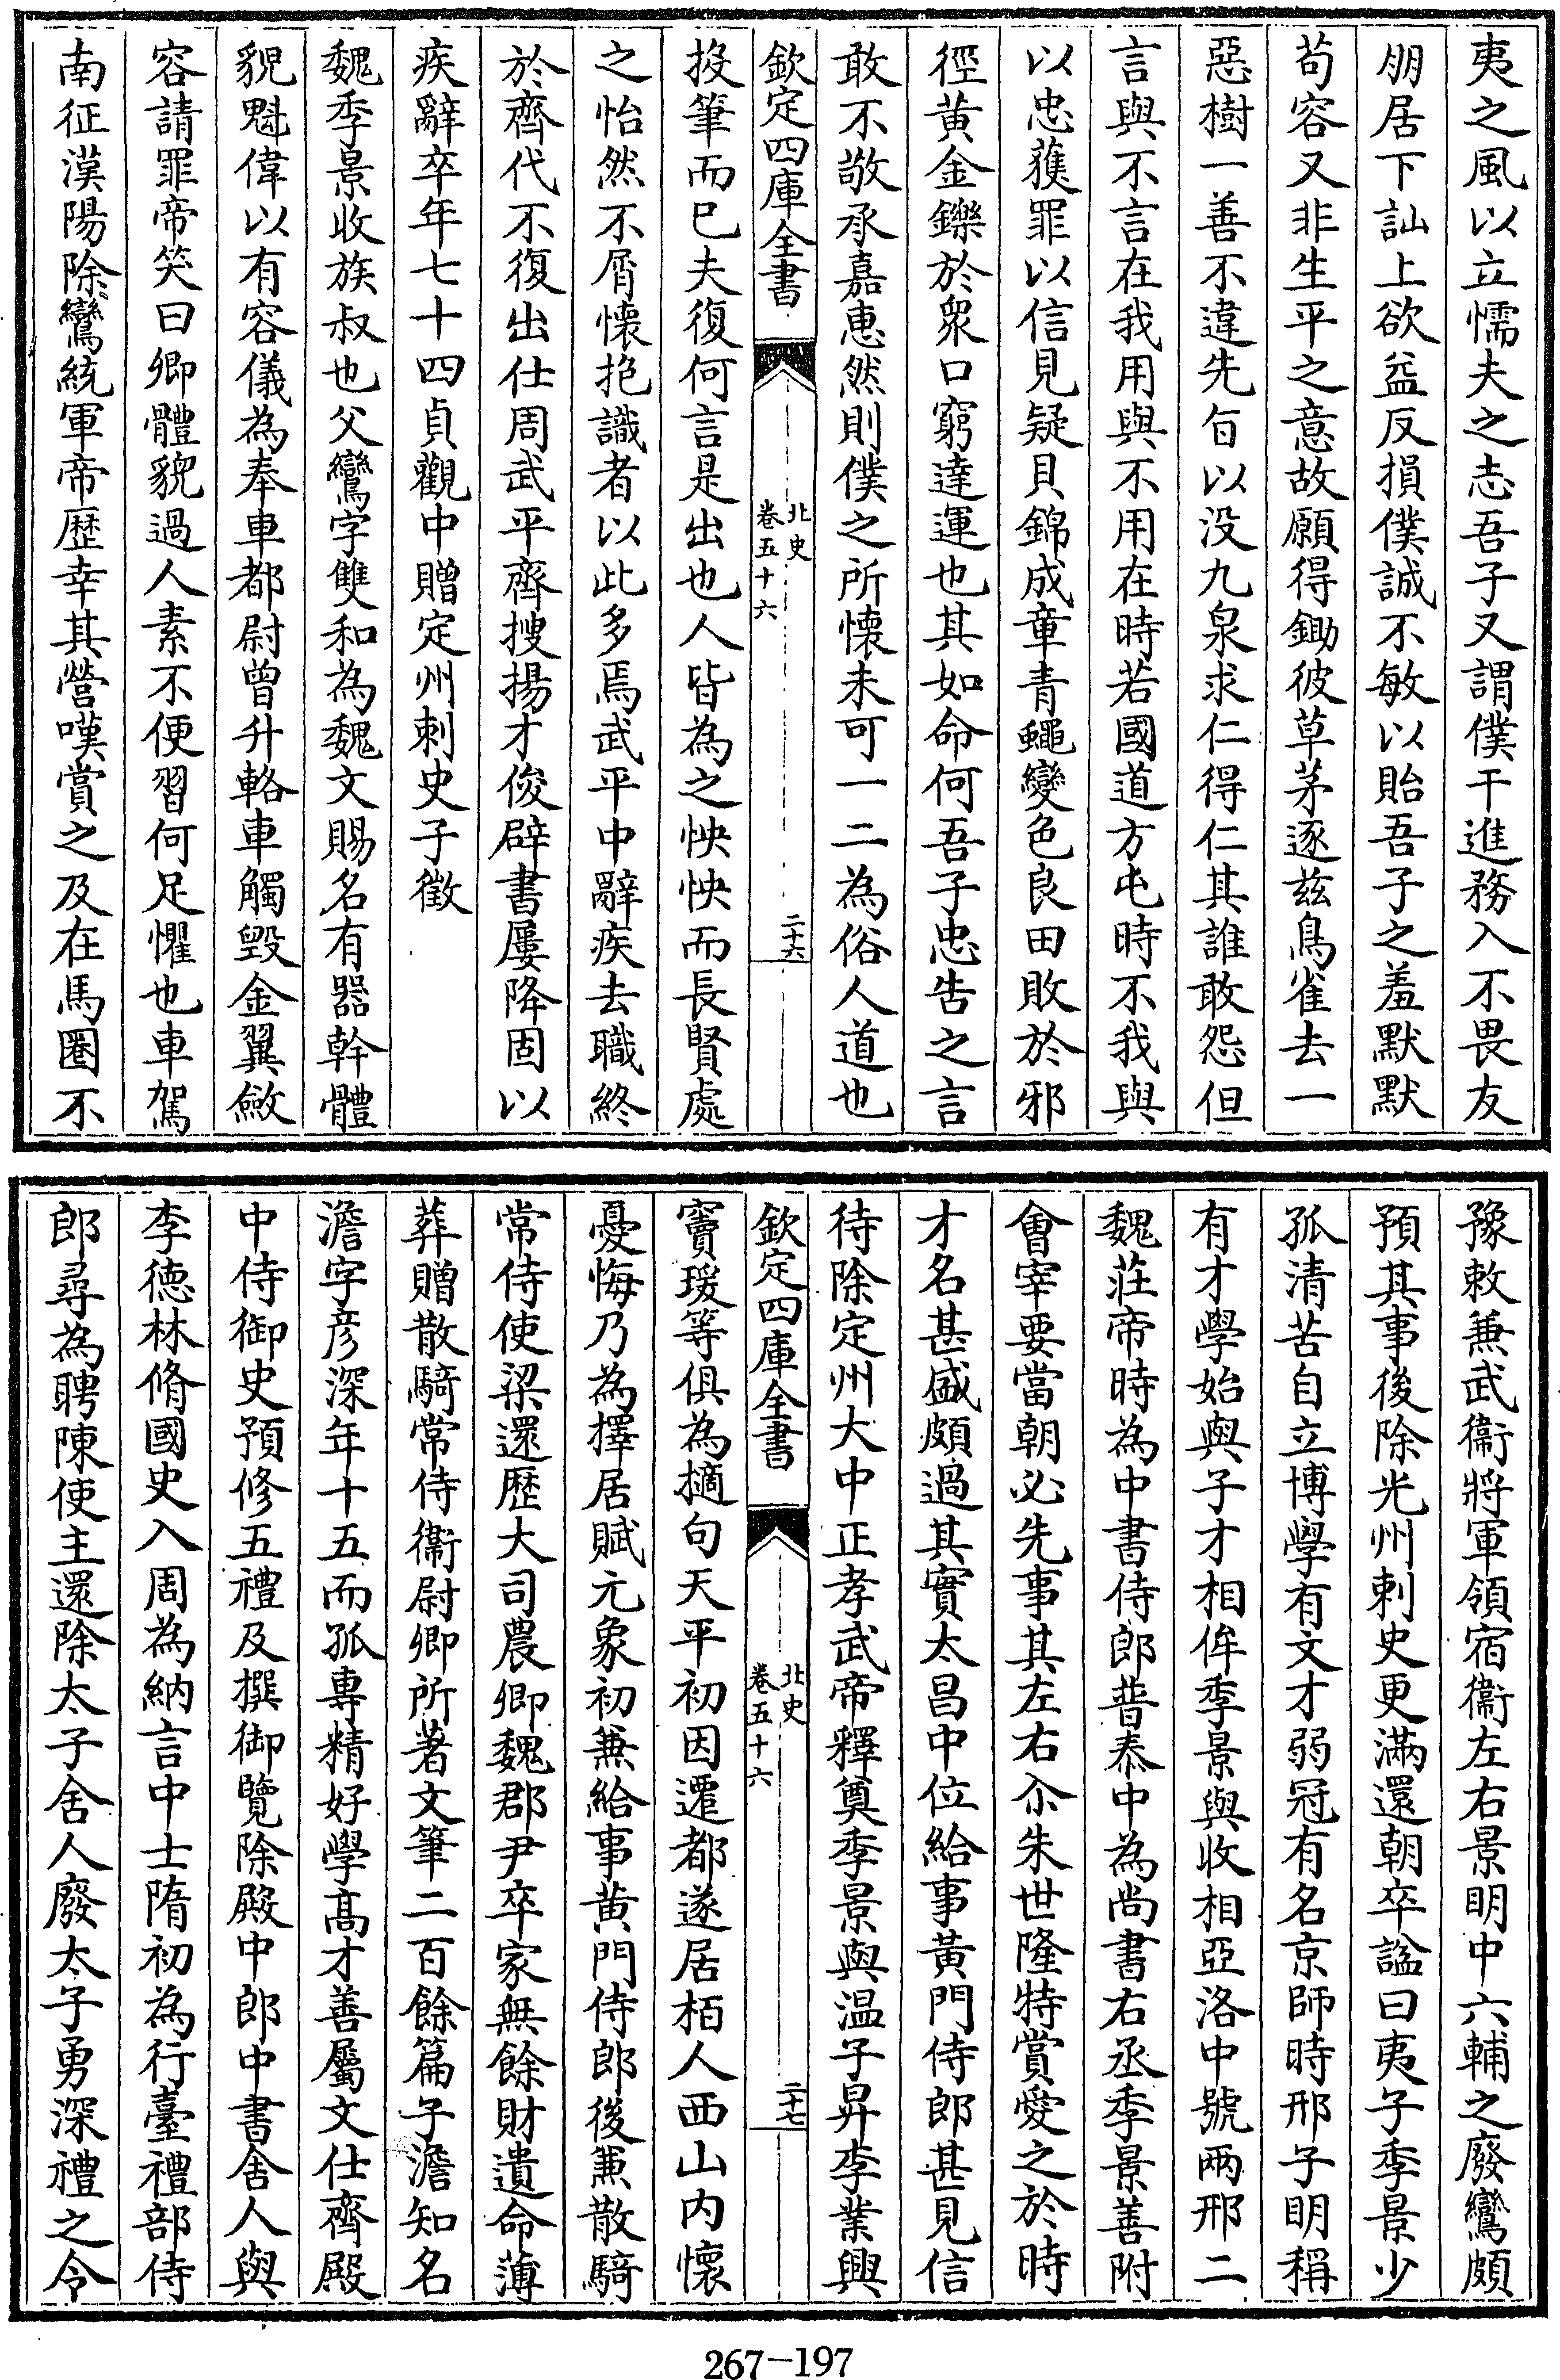 夷之風以立懦夫之志吾子又謂僕干進務入不畏友
朋居下訕上欲益反損僕誠不敏以貽吾子之羞默默
苟容又非生平之意故願得鋤彼草茅逐兹鳥雀去一
惡樹一善不違先旨以没九泉求仁得仁其誰敢怨但
言與不言在我用與不用在時若國道方屯時不我與
以忠獲罪以信見疑貝錦成章青蠅變色良田敗於邪
徑黄金鑠於衆口窮達運也其如命何吾子忠告之言
敢不敬承嘉惠然則僕之所懷未可一二為俗人道也
欽定四庫全書
北史
卷五十六
二十六
投筆而已夫復何言是出也人皆為之怏怏而長賢處
之怡然不屑懷抱識者以此多焉武平中辭疾去職終
於齊代不復出仕周武平齊搜揚才俊辟書屢降固以
疾辭卒年七十四貞觀中贈定州刺史子徵
魏季景收族叔也父鸞字雙和為魏文賜名有器幹體
貌魁偉以有容儀為奉車都尉曾升輅車觸毁金翼斂
容請罪帝笑曰卿體貌過人素不便習何足懼也車駕
南征漢陽除鸞統軍帝歴幸其營嘆賞之及在馬圈不
豫敕兼武衞將軍領宿衞左右景明中六輔之廢鸞頗
預其事後除光州刺史更滿還朝卒諡曰夷子季景少
孤清苦自立博學有文才弱冠有名京師時邢子明稱
有才學始與子才相侔季景與收相亞洛中號兩邢二
魏莊帝時為中書侍郎普泰中為尚書右丞季景善附
會宰要當朝必先事其左右尒朱世隆特賞愛之於時
才名甚盛頗過其實太昌中位給事黃門侍郎甚見信
待除定州大中正孝武帝釋奠季景與温子昇李業興
欽定四庫全書
北史
卷五十六
二十七
竇瑗等俱為摘句天平初因遷都遂居栢人西山内懷
憂悔乃為擇居賦元象初兼給事黄門侍郎後兼散騎
常侍使梁還歴大司農卿魏郡尹卒家無餘財遺命薄
葬贈散騎常侍衞尉卿所著文筆二百餘篇子澹知名
澹字彦深年十五而孤專精好學髙才善屬文仕齊殿
中侍御史預修五禮及撰御覽除殿中郎中書舍人與
李德林脩國史入周為納言中士隋初為行臺禮部侍
郎尋為聘陳使主還除太子舍人廢太子勇深禮之令
267-197